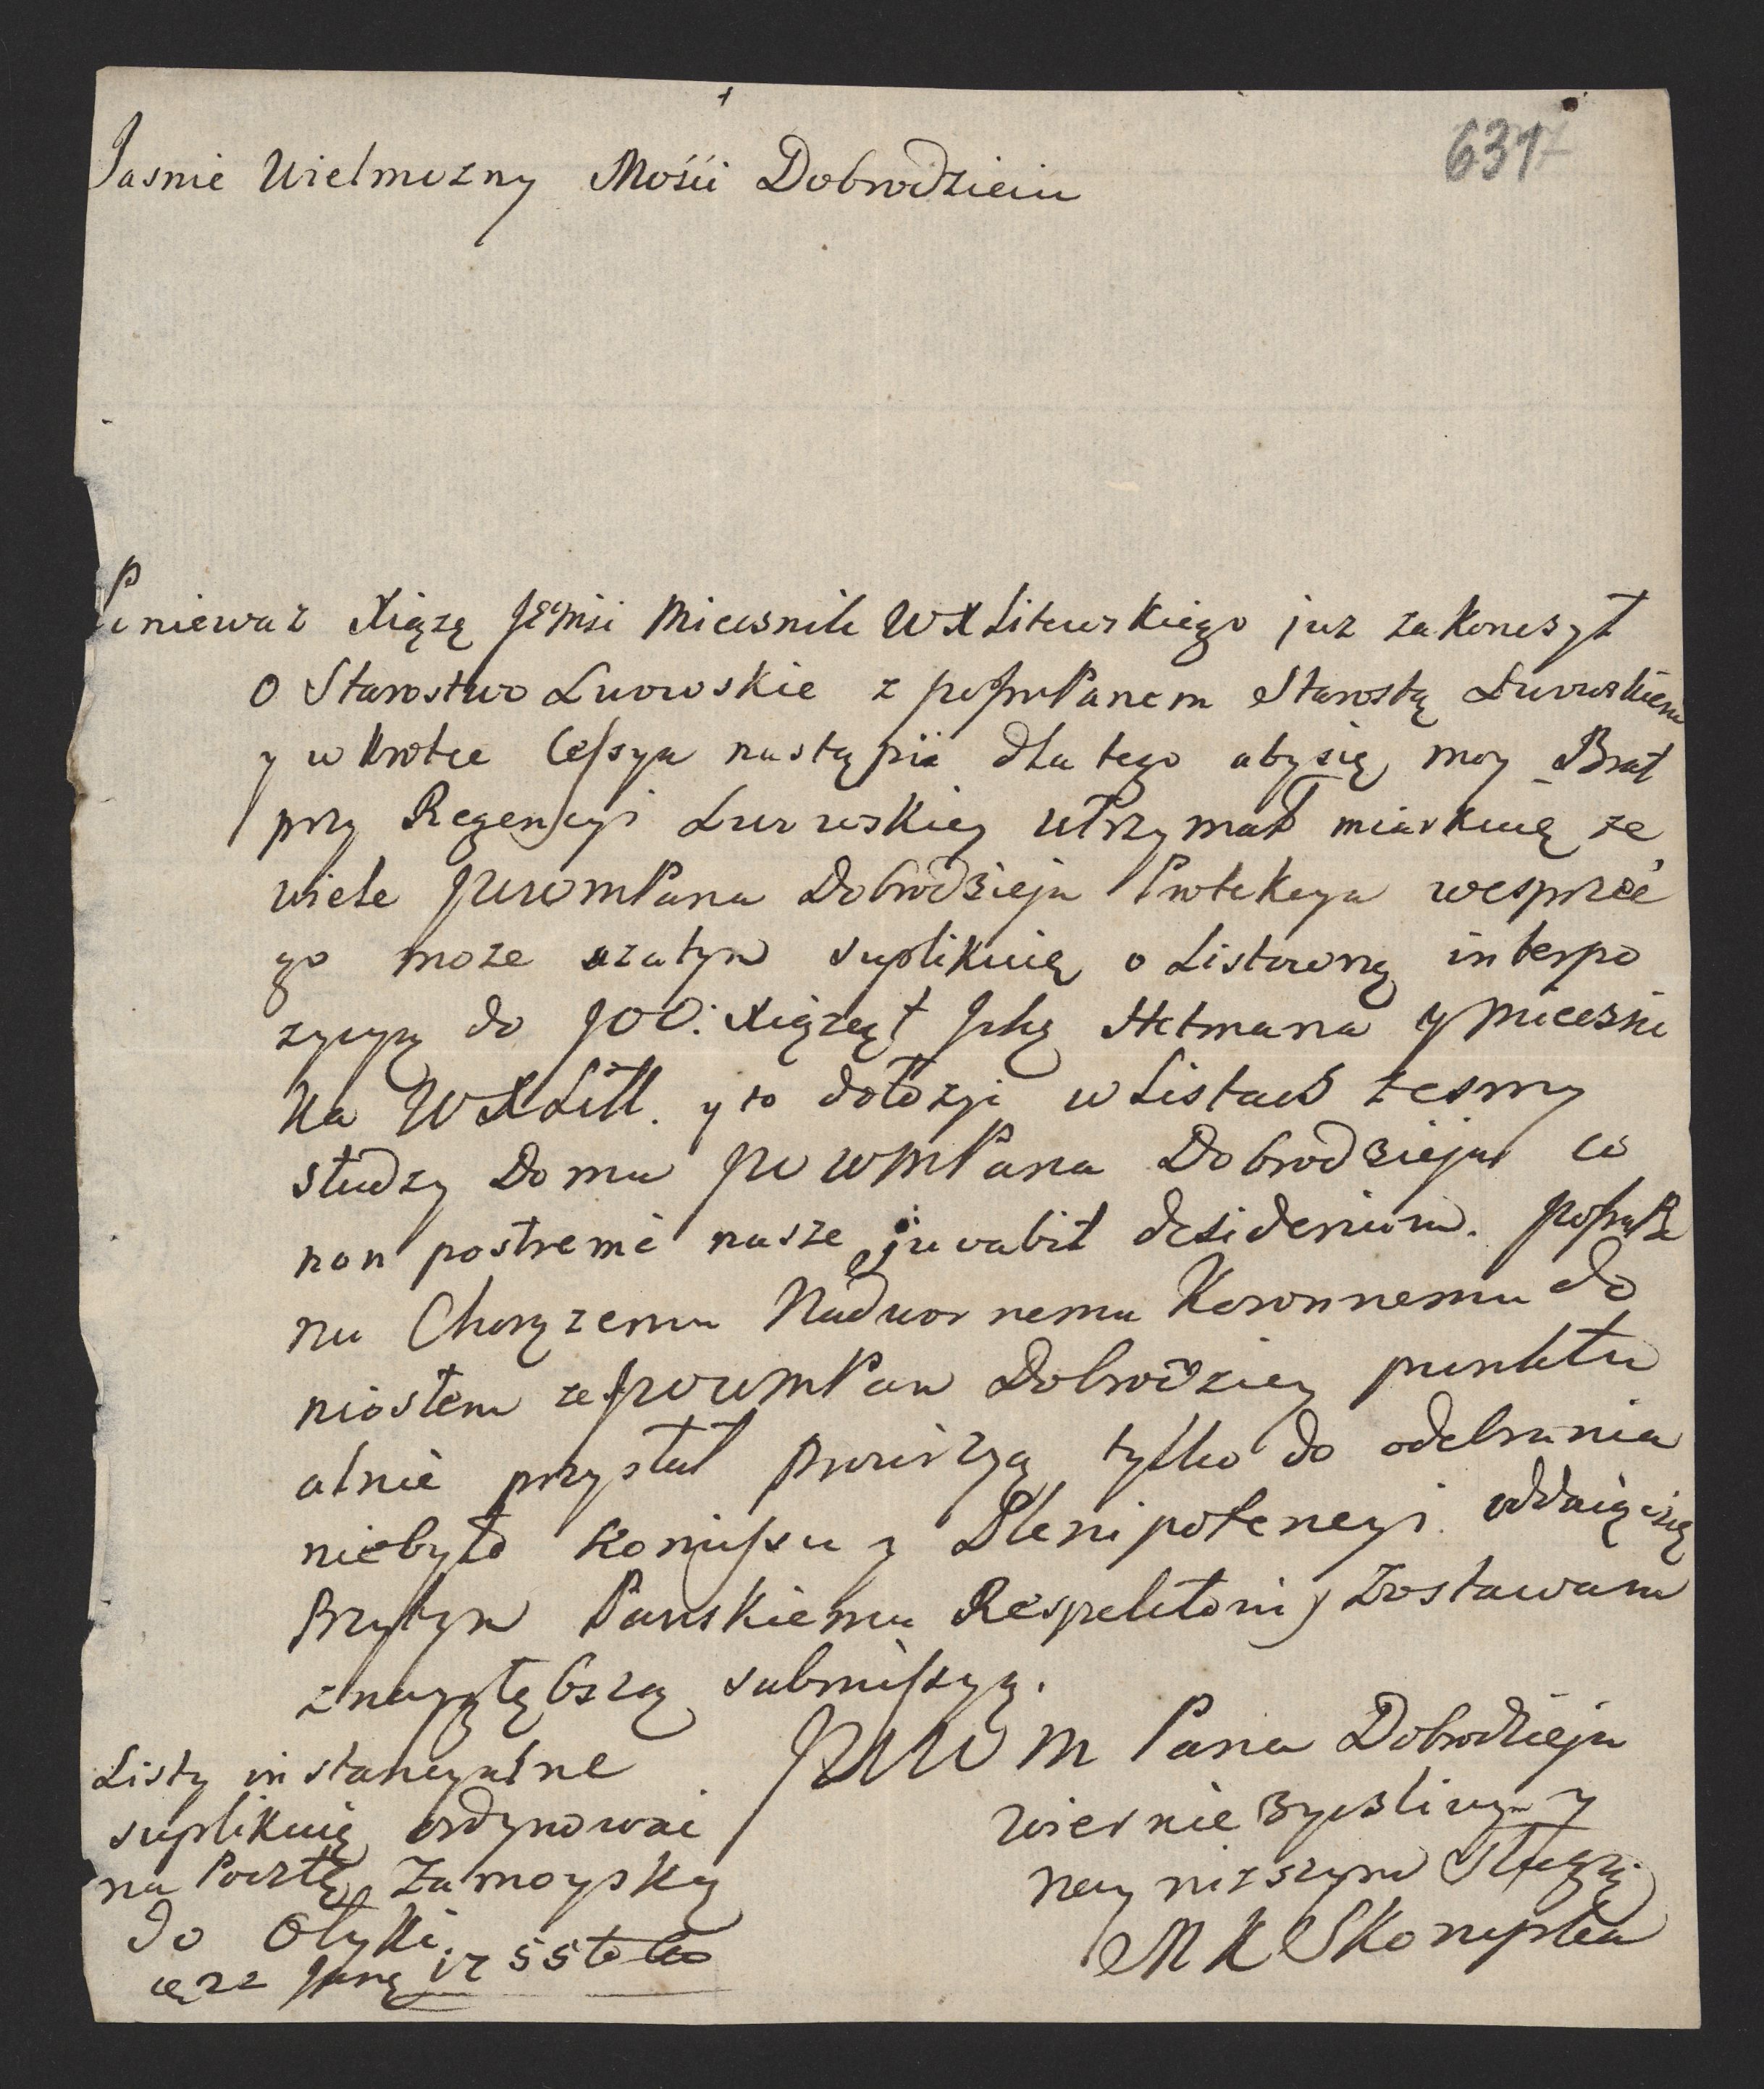 631
Jasnie Wielmozny Mości Dobrodzieiu
Poniewaz Xiązę JEmści Miecsnik WXLitewskiego juz zakonczył
o Starostwo Lwowskie z Panem Starostą Lwowskiem
y wkrotce Cessya nastąpii dla tego abysię moy Brat
przy Regencyi Lwowskiey utrzymał miarkuię ze
wiele JWWMPana Dobrodzieja Protekcya wesprzeć
go moze azatym suplikuię o Listowną interpo
zycyą do JOO: Xiązęąt Hetmana y Miecsni
ka WXLitt. y to dołozyi w Listach zesmy
słudzy Domu JWWMPana Dobrodzieja co
non postremé nasze juvabit desiderium.
nu Chorązemu Nadwornemu Koronnemu do
niosłem ze JWWMPan Dobrodziey punktu
alnie przysłał prowizyą tylko do odebrania
niebyło Komissu y Plenipotencyi oddaiąc się
Przytym Panskiemu Respektowi zostawam
znaygłębszą submissyą.
JWWM Pana Dobrodzieja
zyczliwym y
nayniszszym Sługą
MKSkorupka
Listy instancyalne
suplikuię ordynowai
na Pocztę Zamoyską
do Ołyki.